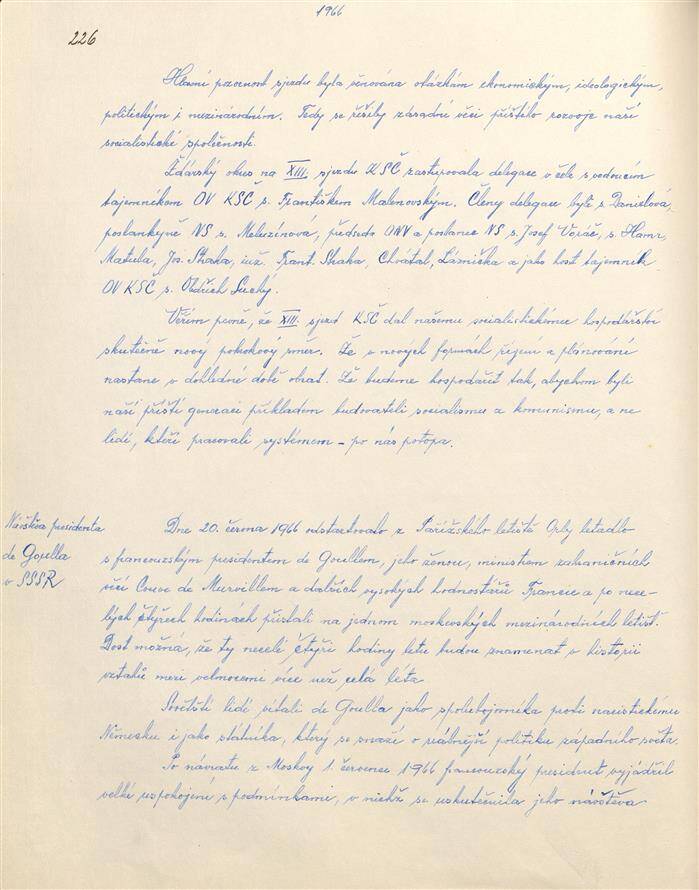 1966
226
Hlavní pozornost sjezdu byla věnována otázkám ekonomickým, ideologickým,
politickým i mezinárodním. Tedy se řešily zásadní věci příštího rozvoje naší
socialistické společnosti.
Žďárský okres na XIII. sjezdu KSČ zastupovala delegace v čele s vedoucím
tajemníkem OV KSČ s. Františkem Malenovským. Členy delegace byli s. Danielová,
poslankyně NS s. Meluzínová, předseda ONV a poslanec NS s. Josef Voráč, s. Hamr,
Matula, Jos. Straka, inž. Frant. Straka, Chvátal, Láznička a jako host tajemník
OV KSČ s. Oldřich Suchý.
Věřím pevně, že XIII. sjezd KSČ dal našemu socialistickému hospodářství
skutečně nový pokrokový směr. Že v nových formách řízení a plánování
nastane v dohledné době obrat. Že budeme hospodařit tak, abychom byli
naší příští generaci příkladem budovatelů socialismu a komunismu, a ne
lidí, kteří pracovali systémem – po nás potopa.
Návštěva presidenta
de Goulla
v SSSR
Dne 20. června 1966 odstartovalo z Pařížského letiště Orly letadlo
s francouzským presidentem de Goullem, jeho ženou, ministrem zahraničních
věcí Couve de Murvillem a dalších vysokých hodnostářů Francie a po nece-
lých čtyřech hodinách přistáli na jednom moskevských mezinárodních letišť.
Dost možná, že ty necelé čtyři hodiny letu budou znamenat v historii
vztahů mezi velmocemi více než celá léta.
Sovětští lidé vítali de Goulla jako spolubojovníka proti nacistickému
Německu i jako státníka, který se snaží o reálnější politiku západního světa.
Po návratu z Moskvy 1. července 1966 francouzský president vyjádřil
velké uspokojení s podmínkami, v nichž se uskutečnila jeho návštěva